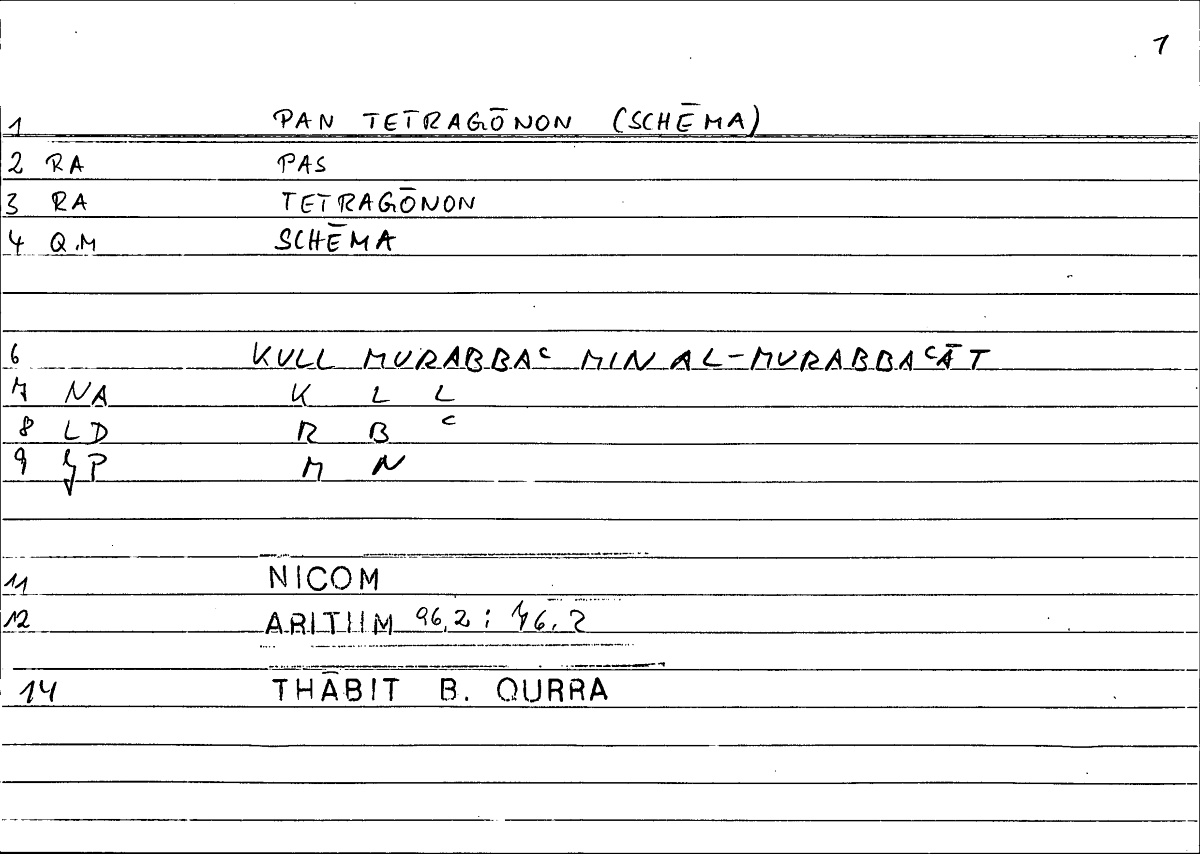 1
1 PAN TETRAGŌNON (SCHĒMA)
2 RA PAS
3 RA TETRAGŌNON
4 Q.M SCHĒMA
6 KULL MURABBAᶜ MIN AL-MURABBAᶜĀT
7 NA K L L
8 LD R B ᶜ
9 P M N
11 NICOM
12 ARITHM 96,2 ; 76,2
14 THĀBIT B. QURRA